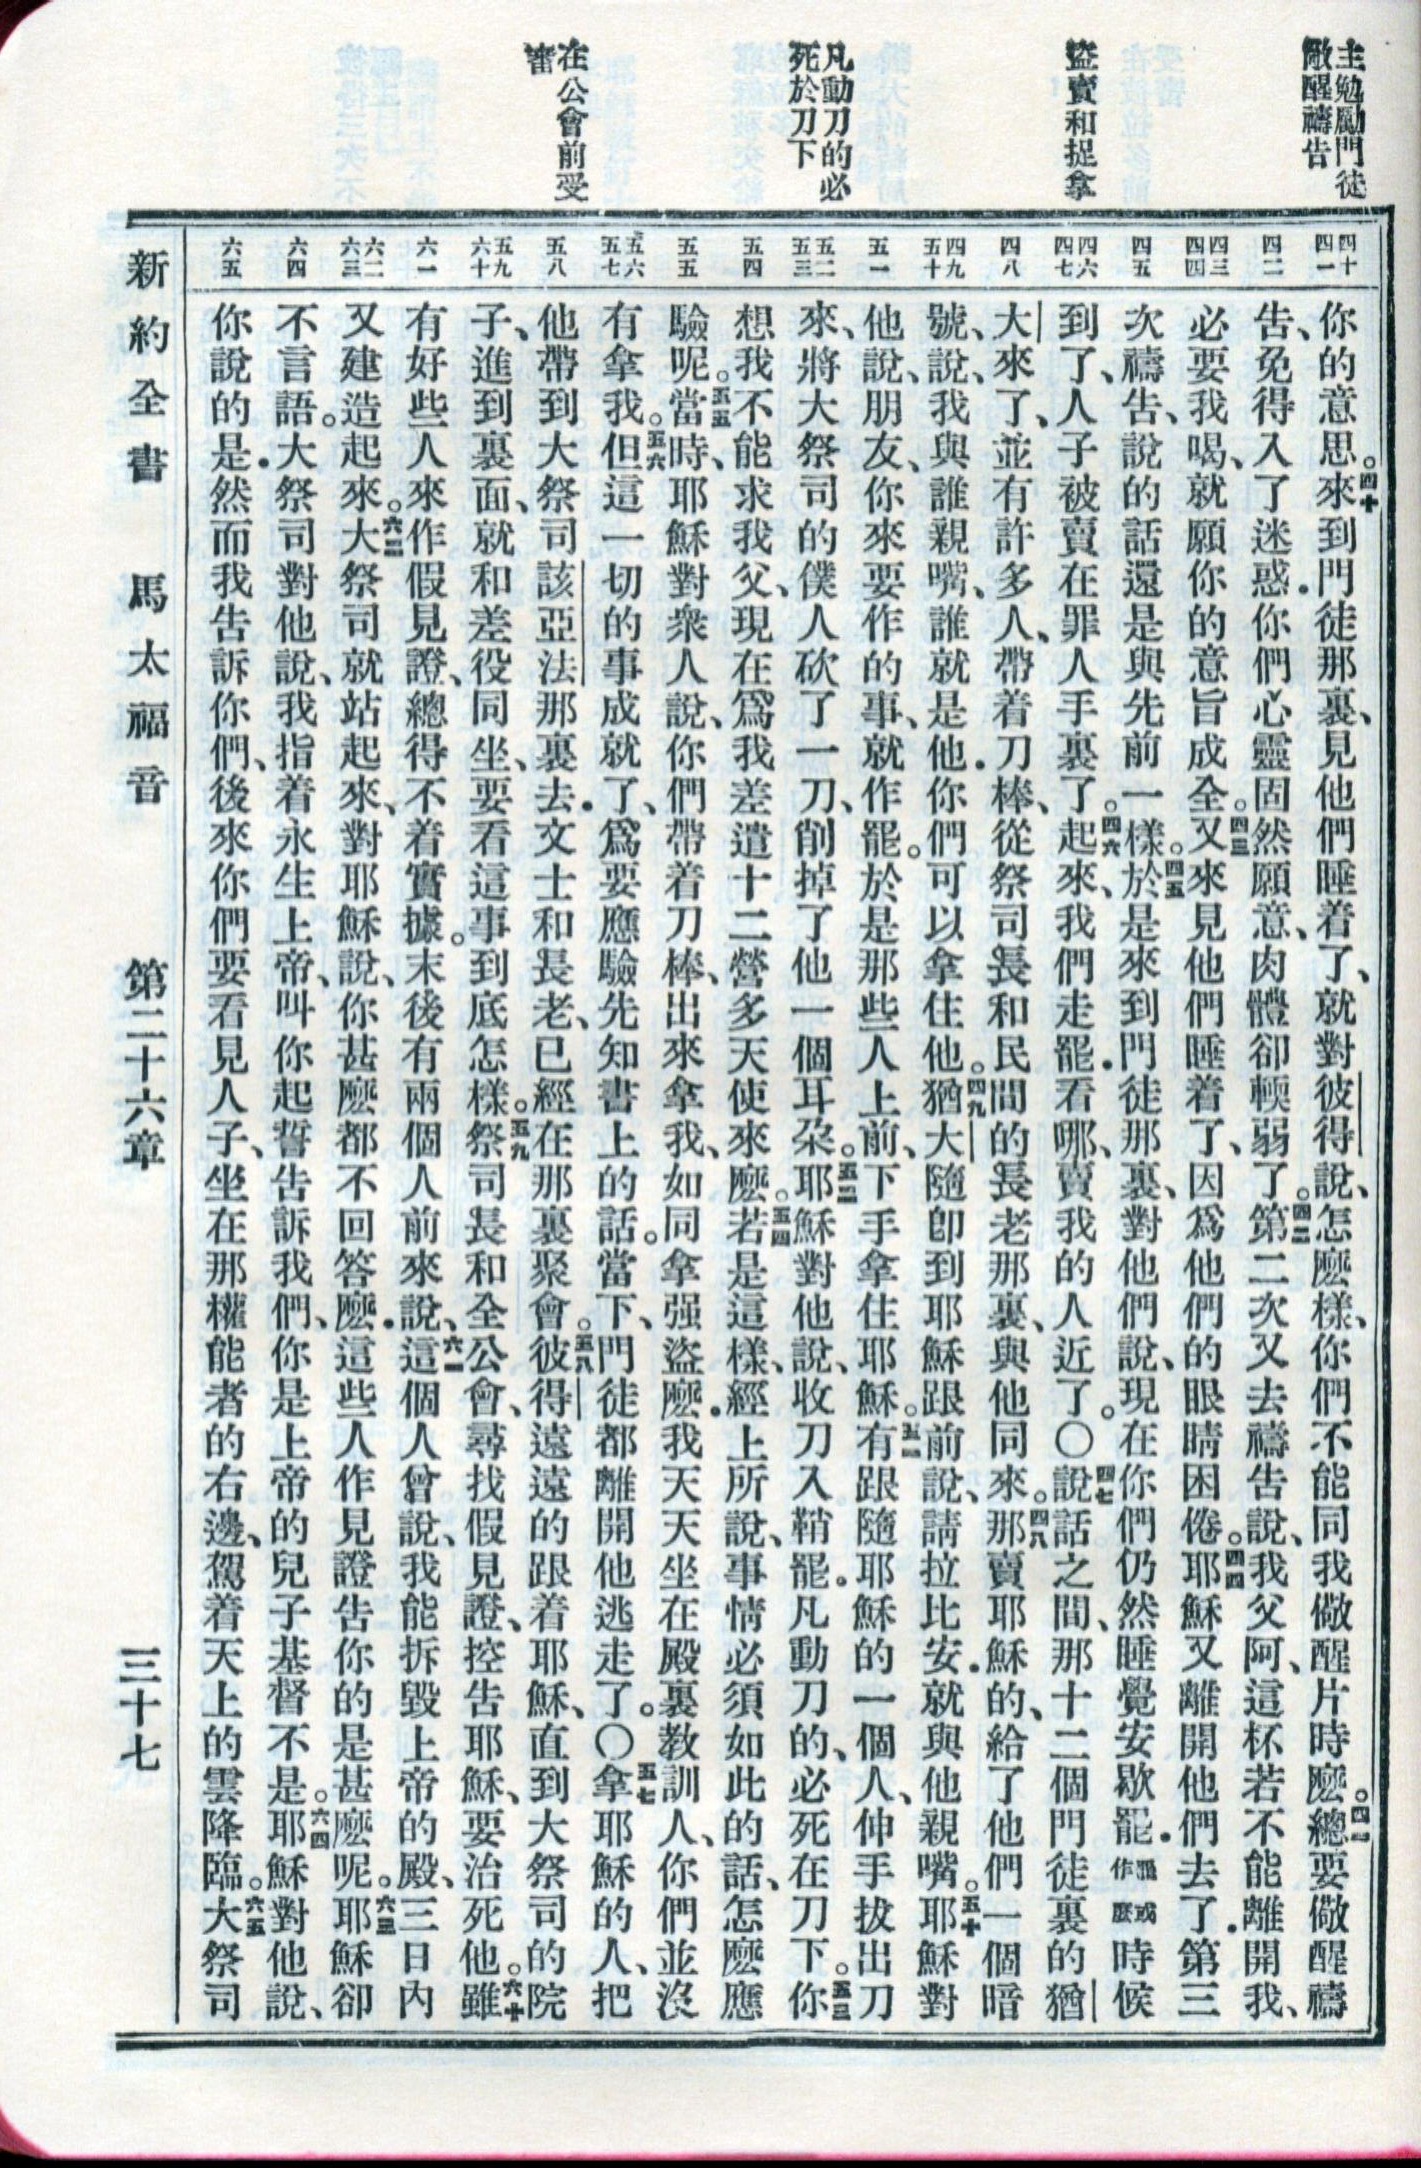 主勉勵門徒
儆醒禱告
盜賣和捉拿
凡動刀的必
死於刀下
在公會前受
審
四十 四一
你的意思。四十來到門徒那裏、見他們睡着了、就對彼得說、怎麼樣、你們不能同我儆醒片時麼。四一總要儆醒禱
四二
告、免得入了迷惑．你們心靈固然願意、肉體卻輭弱了。四二第二次又去禱告說、我父阿、這杯若不能離開我、
四三 四四
必要我喝、就願你的意旨成全。四三又來見他們睡着了、因爲他們的眼睛困倦。四四耶穌又離開他們去了．第三
四五
次禱告、說的話還是與先前一樣。四五於是來到門徒那裏、對他們說、現在你們仍然睡覺安歇罷．罷或作麼時候
四六 四七
到了、人子被賣在罪人手裏了。四六起來、我們走罷．看哪、賣我的人近了。〇四七說話之間、那十二個門徒裏的猶
四八
大來了、並有許多人、帶着刀棒、從祭司長和民間的長老那裏、與他同來。四八那賣耶穌的、給了他們一個暗
四九 五十
號、說、我與誰親嘴、誰就是他．你們可以拿住他。四九猶大隨卽到耶穌跟前說、請拉比安．就與他親嘴。五十耶穌對
五一
他說、朋友、你來要作的事、就作罷。於是那些人上前、下手拿住耶穌。五一有跟隨耶穌的一個人、伸手拔出刀
五二 五三
來、將大祭司的僕人砍了一刀、削掉了他一個耳朶。五二耶穌對他說、收刀入鞘罷．凡動刀的、必死在刀下。五三你
五四
想我不能求我父、現在爲我差遣十二營多天使來麼。五四若是這樣、經上所說、事情必須如此的話、怎麼應
五五
驗呢。五五當時、耶穌對衆人說、你們帶着刀棒、出來拿我、如同拿强盜麼．我天天坐在殿裏教訓人、你們並沒
五六 五七
有拿我。五六但這一切的事成就了、爲要應驗先知書上的話。當下、門徒都離開他逃走了。〇五七拿耶穌的人、把
五八
他帶到大祭司該亞法那裏去．文士和長老、已經在那裏聚會。五八彼得遠遠的跟着耶穌、直到大祭司的院
五九 六十
子、進到裏面、就和差役同坐、要看這事到底怎樣。五九祭司長和全公會、尋找假見證、控告耶穌、要治死他。六十雖
六一
有好些人來作假見證、總得不着實據。末後有兩個人前來說、六一這個人曾說、我能拆毀上帝的殿、三日內
六二 六三
又建造起來。六二大祭司就站起來、對耶穌說、你甚麼都不回答麼．這些人作見證告你的是甚麼呢。六三耶穌卻
六四
不言語。大祭司對他說、我指着永生上帝、叫你起誓告訴我們、你是上帝的兒子基督不是。六四耶穌對他說、
六五
你說的是．然而我告訴你們、後來你們要看見人子、坐在那權能者的右邊、駕着天上的雲降臨。六五大祭司
新約全書 馬太福音 第二十六章 三十七